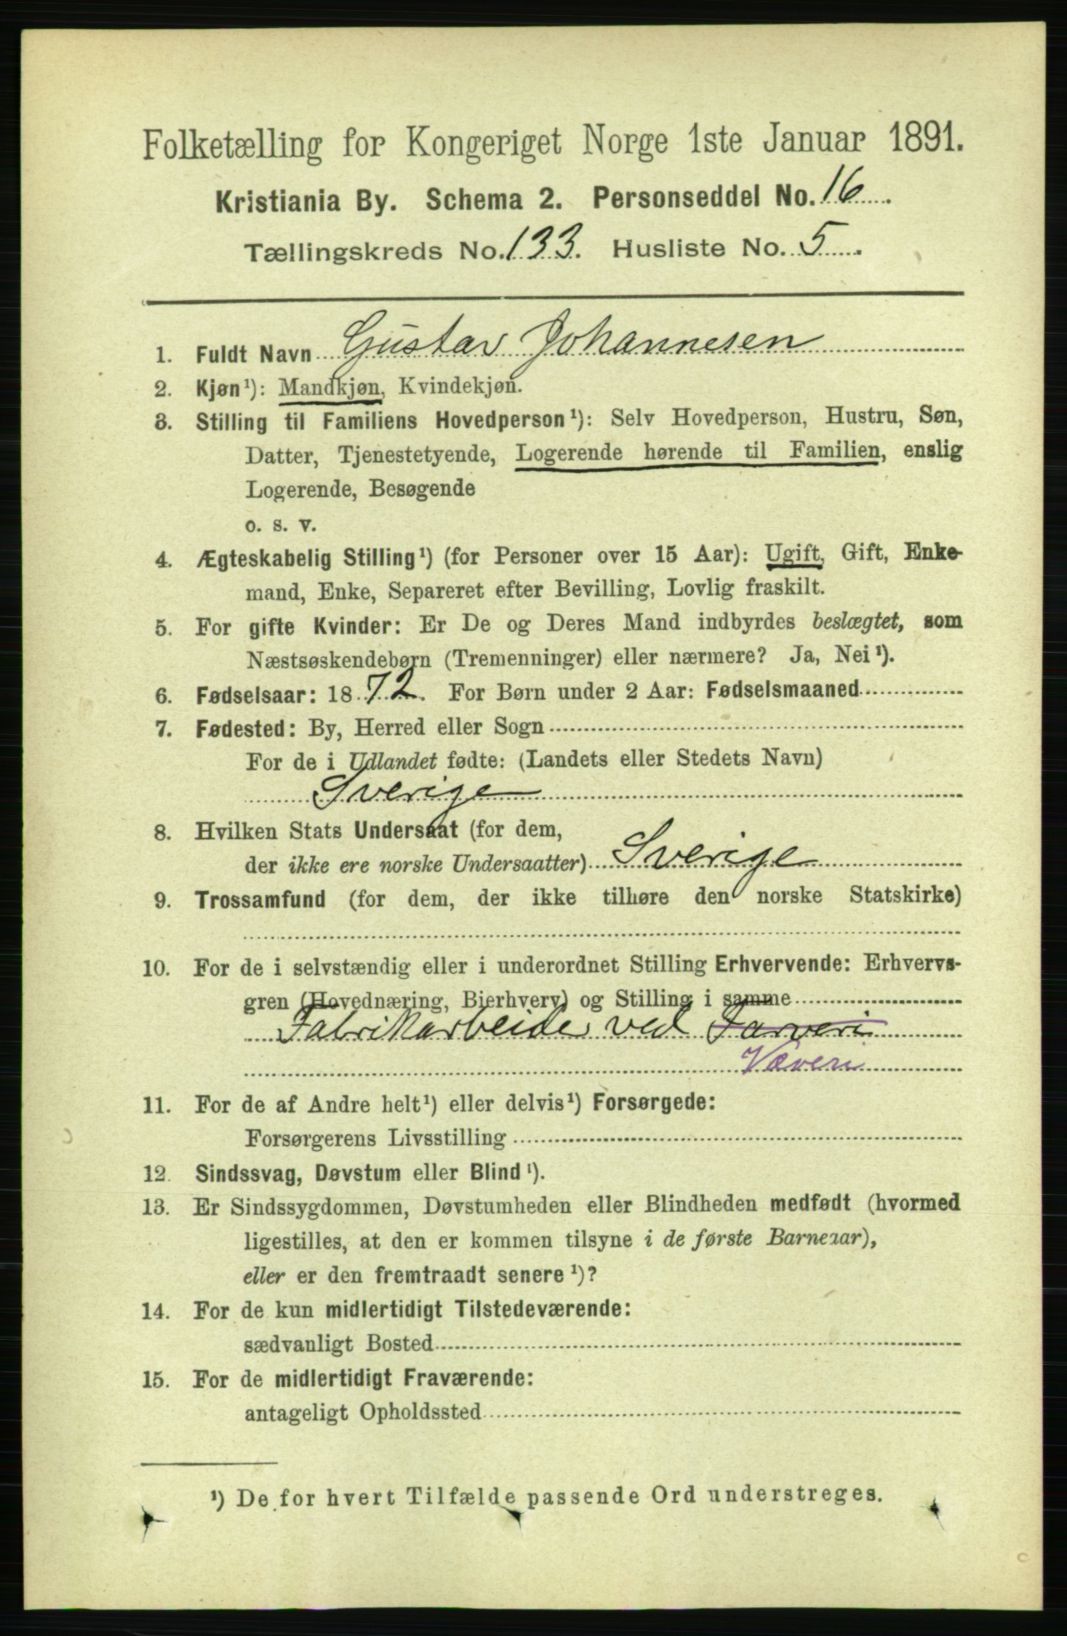 Folketælling for Kongeriget Norge 1ste Januar 1891.
Kristiania By. Schema 2. Personseddel No. 16.
Tællingskreds No. 133. Husliste No. 5.
1. Fuldt Navn Gustav Johannesen
2. Kjøn¹): Mandkjøn, Kvindekjøn.
3. Stilling til Familiens Hovedperson¹): Selv Hovedperson, Hustru, Søn,
Datter, Tjenestetyende, Logerende hørende til Familien, enslig
Logerende, Besøgende
o. s. v.
4. Ægteskabelig Stilling¹) (for Personer over 15 Aar): Ugift, Gift, Enke-
mand, Enke, Separeret efter Bevilling, Lovlig fraskilt.
5. For gifte Kvinder: Er De og Deres Mand indbyrdes beslægtet, som
Næstsøskendebørn (Tremenninger) eller nærmere? Ja, Nei¹).
6. Fødselsaar: 1872. For Børn under 2 Aar: Fødselsmaaned
7. Fødested: By, Herred eller Sogn
For de i Udlandet fødte: (Landets eller Stedets Navn)
Sverige
8. Hvilken Stats Undersaat (for dem,
der ikke ere norske Undersaatter) Sverige
9. Trossamfund (for dem, der ikke tilhøre den norske Statskirke)
10. For de i selvstændig eller i underordnet Stilling Erhvervende: Erhvervs-
gren (Hovednæring, Bierhverv) og Stilling i samme
Fabrikarbeider ved Farveri
Væveri
11. For de af Andre helt¹) eller delvis¹) Forsørgede:
Forsørgerens Livsstilling
12. Sindssvag, Døvstum eller Blind¹).
13. Er Sindssygdommen, Døvstumheden eller Blindheden medfødt (hvormed
ligestilles, at den er kommen tilsyne i de første Barneaar),
eller er den fremtraadt senere¹)?
14. For de kun midlertidigt Tilstedeværende:
sædvanligt Bosted
15. For de midlertidigt Fraværende:
antageligt Opholdssted
¹) De for hvert Tilfælde passende Ord understreges.